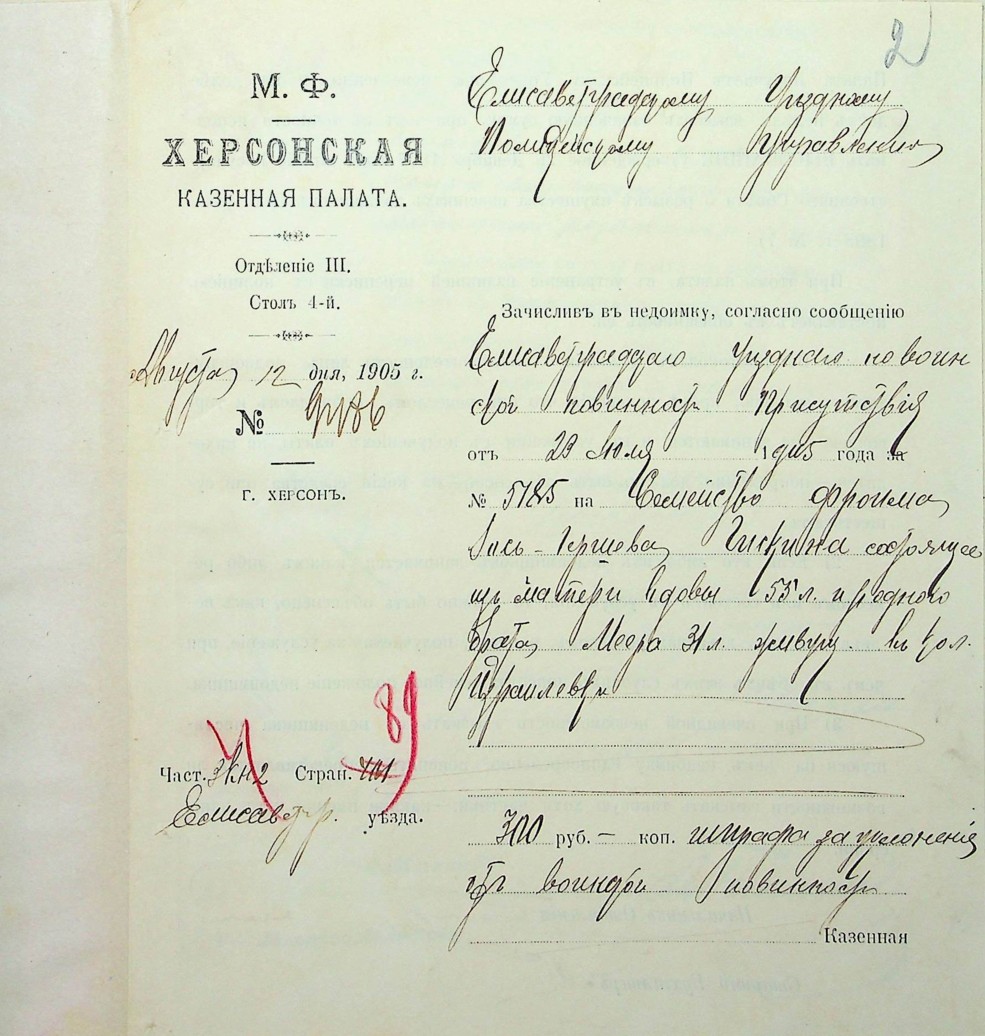 2
М. Ф.
ХЕРСОНСКАЯ
КАЗЕННАЯ ПАЛАТА.
Отдѣленіе III.
Столъ 4-й.
Августа 12 дня, 1905 г.
№
г. ХЕРСОНЪ.
Част. 3 кн 2 Стран.
89
Елисаветгр. уѣзда.
Елисаветградскому Уѣздному
Полицейскому Управленію
Зачисливъ въ недоимку, согласно сообщенію
Елисаветградскаго Уѣзднаго по воин
ской повинности Присутствія
отъ 23 Іюля 1905 года за
№ 5125 на Семейство Фроима
Гершева состоящее
изъ матери вдовы 55 л. и родного
брата Меера 31 л. живущ. въ кол.
Израилевкѣ
300 руб. — коп. штрафа за уклоненіе
отъ воинской повинности
Казенная